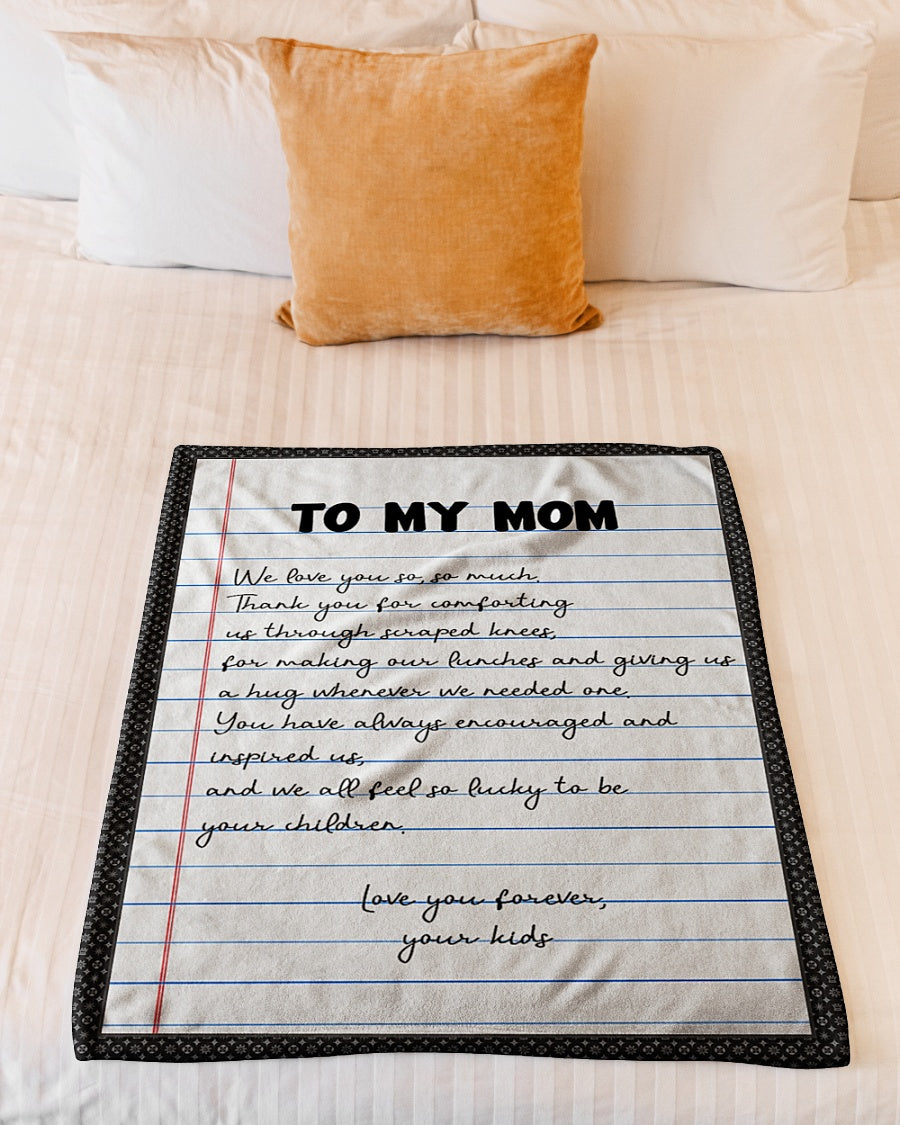 TO MY MOM
We love you so, so much.
Thank you for comforting
us through scraped knees,
for making our lunches and giving us
a hug whenever we needed one.
You have always encouraged and
inspired us,
and we all feel so lucky to be
your children.
Love you forever,
your kids